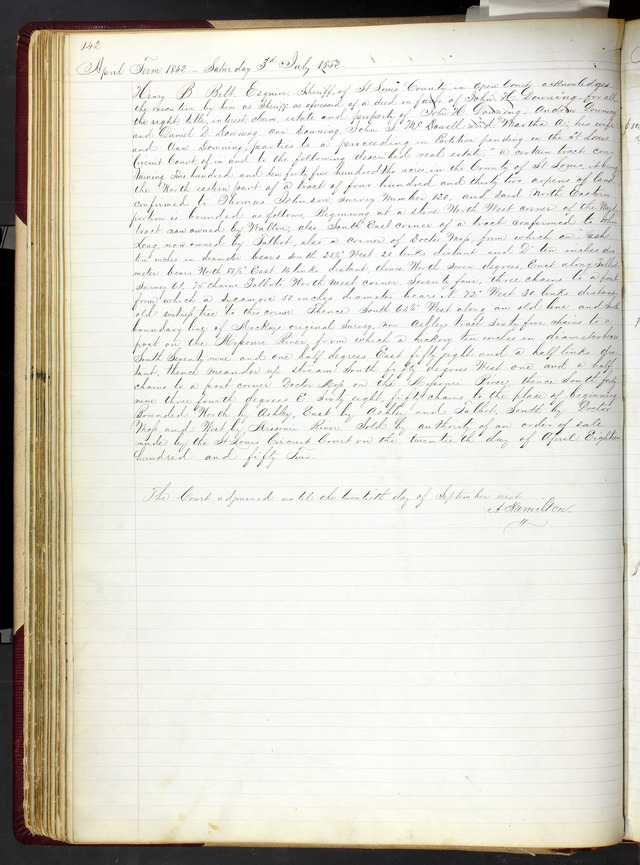 142
April Term 1852 – Saturday 3d July 1852
Henry B Belt Esquire, Sheriff of St Louis County in open Court acknowledges
the execution by him as Sheriff as aforesaid of a deed in favor of John H. Downing, for all
the right, title, interest, claim estate and property of John H. Downing, Downing
and Daniel D. Downing, Ann Downing, John S. Mc Dowell and Martha A., his wife
and Ann Downing, parties to a proceeding in Partition pending in the St Louis
Circuit Court, of in and to the following described real estate – a certain tract con-
taining two hundred and ten forty five hundredths acres, in the County of St Louis, it being
the North eastern part of a tract of four hundred and thirty two arpens of land
confirmed to Thomas Johnson Survey Number 120, and said North Eastern
portion is bounded as follows, Beginning at a stone North West corner of the
tract now owned by Walton, also South East corner of a tract confirmed to John
Long, now owned by Talbot, also a corner of Doctor from which an ash
ten inches in diameter bears South 28½° West 20 links distant and ten inches dia-
meter bears North 53½° East 14 links distant, thence North Seven degrees, East along Talbots
Survey 61, 70 chains Talbots North west corner, Seventy four, three chains to a post
from which a Sycamore 50 inches diameter bears N 72° West 30 links distant
old witness tree to this corner Thence South 65½° West along an old line and
boundary line of Mackays original Survey, now Ashleys tract Sixty five chains to a
post on the Missouri River, from which a hickory ten inches in diameter bears
South Seventy nine and one half degrees East fifty eight and a half links dis-
tant, thence meander up stream South fifty degrees West one and a half
chains to a post corner Doctor on the Missouri River, thence South forty
nine three fourth degrees E. Sixty eight, fifty chains to the place of beginning
Bounded North by Ashley, East by Ashley and Talbot, South by Doctor
and West by Missouri River Sold by authority of an order of sale
made by the St Louis Circuit Court on the twentieth day of April Eighteen
hundred and fifty Two.
The Court adjourned until the twentieth day of September next
A Hamilton.